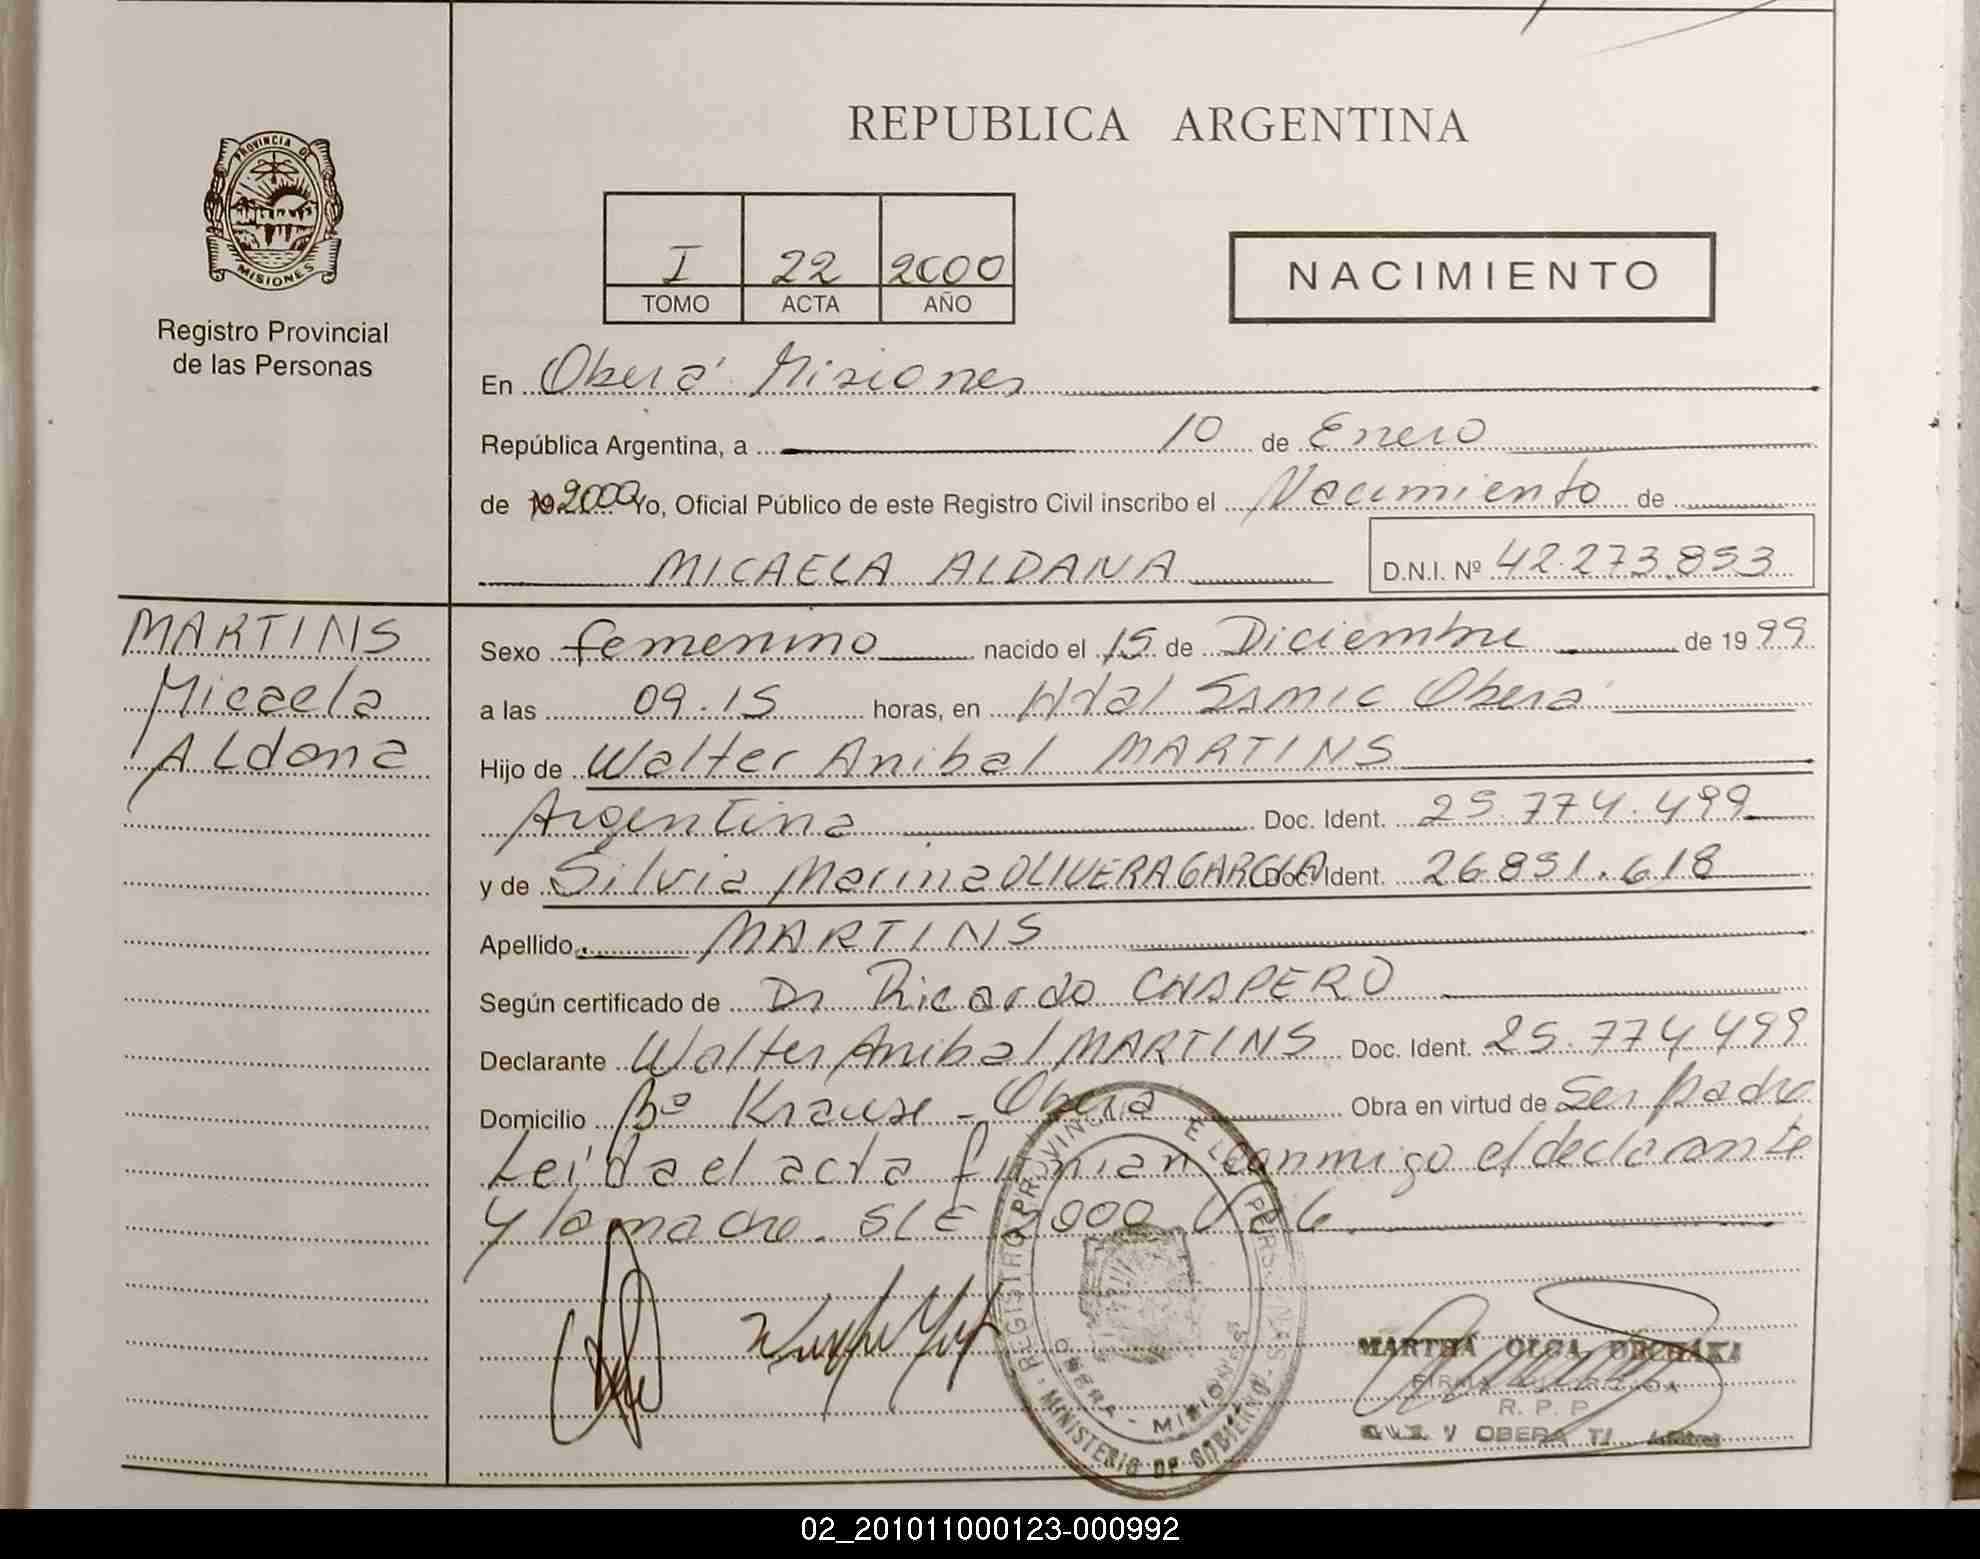 PROVINCIA DE
MISIONES
Registro Provincial
de las Personas
REPUBLICA ARGENTINA
I 22 2000
TOMO ACTA AÑO
NACIMIENTO
En Oberá Misiones
República Argentina, a 10 de Enero
de 19 2000 Yo, Oficial Público de este Registro Civil inscribo el Nacimiento de
MICAELA ALDANA D.N.I. Nº 42.273.853
MARTINS
Micaela
Aldana
Sexo femenino nacido el 15 de Diciembre de 1999
a las 09.15 horas, en Htal Samic Oberá
Hijo de Walter Anibal MARTINS
Argentina Doc. Ident. 25.774.499
y de Silvia Marina OLIVERA GARCIA Doc. Ident. 26.851.618
Apellido MARTINS
Según certificado de Dr Ricardo CHAPERO
Declarante Walter Anibal MARTINS Doc. Ident. 25.774.499
Domicilio Bº Krause - Oberá Obra en virtud de Ser padre
Leída el acta firman conmigo el declarante
y la madre. S/E 2000 Vale.
REGISTRO PROVINCIAL DE LAS PERSONAS
OBERA - MISIONES
MINISTERIO DE GOBIERNO
MARTHA OLGA
FIRMA AUTORIZADA
R. P. P.
OBERA
02_201011000123-000992